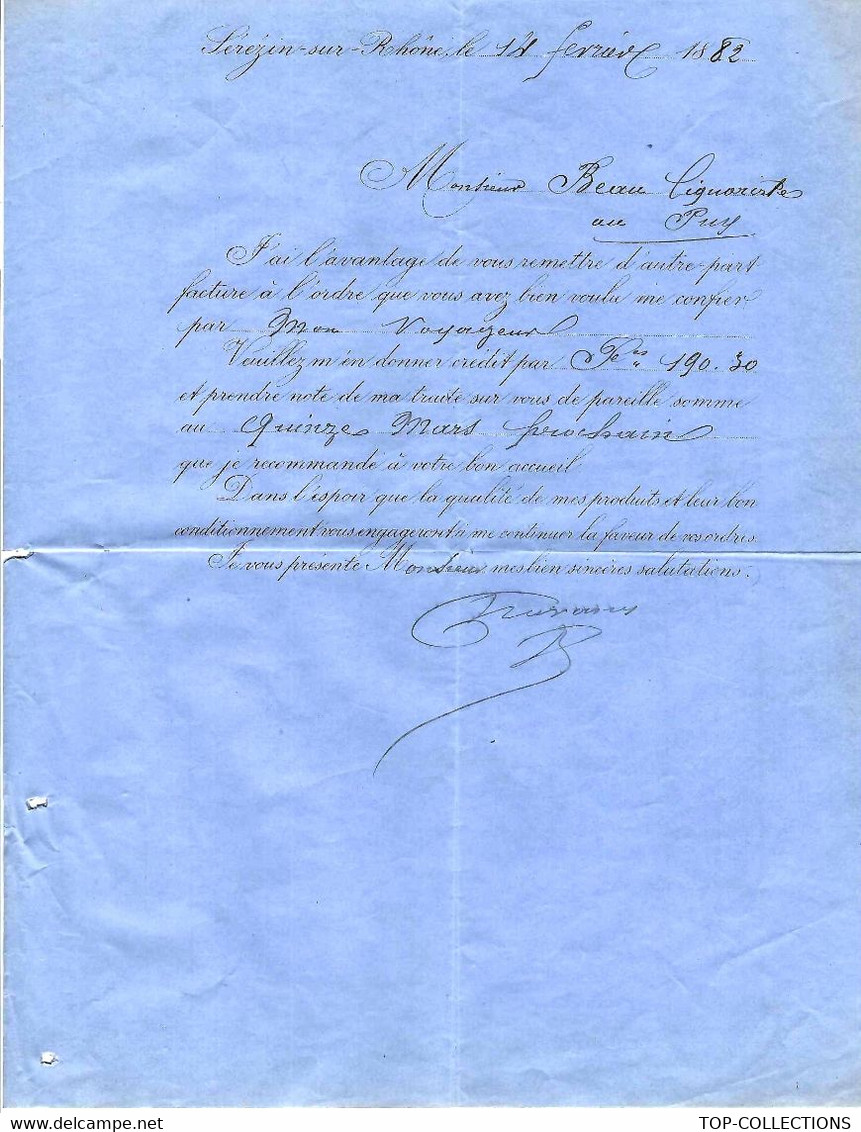 Sérézin-sur-Rhône, le 14 fevrier 1882
Monsieur Beau Liquoriste
au Puy
J'ai l'avantage de vous remettre d'autre part
facture à l'ordre que vous avez bien voulu me confier
par Mon Voyageur
Veuillez m'en donner crédit par Fcs 190.30
et prendre note de ma traite sur vous de pareille somme
au Quinze Mars prochain
que je recommande à votre bon accueil
Dans l'espoir que la qualité de mes produits et leur bon
conditionnement vous engageront à me continuer la faveur de vos ordres.
Je vous présente Monsieur mes bien sincères salutations.
TOP-COLLECTIONS